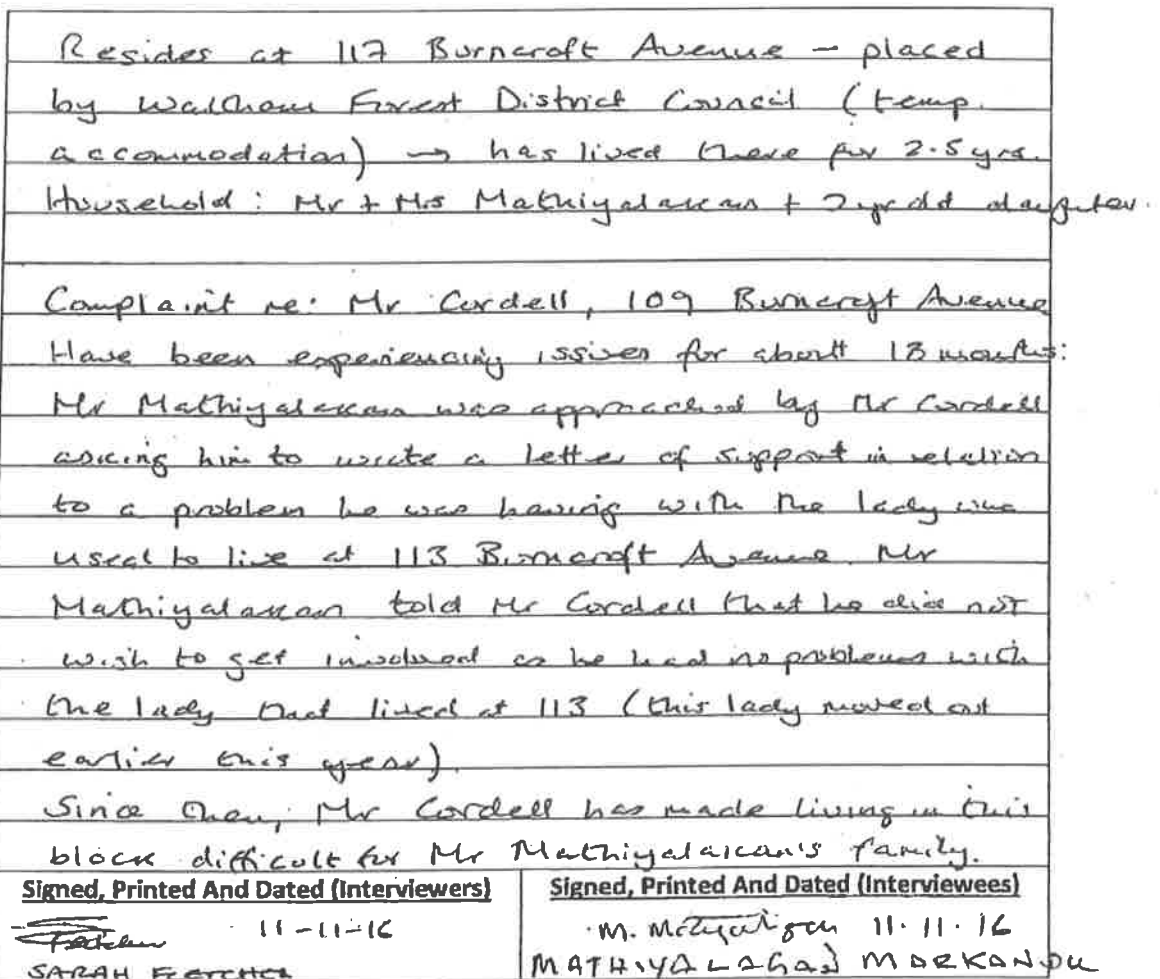 Resides at 117 Burncroft Avenue – placed
by Waltham Forest District Council (temp.
accommodation) → has lived there for 2.5 yrs.
Household: Mr + Mrs Mathiyalakan + 2 yr old daughter.
Complaint re: Mr Cordell, 109 Burncroft Avenue
Have been experiencing issues for about 18 months:
Mr Mathiyalakan was approached by Mr Cordell
asking him to write a letter of support in relation
to a problem he was having with the lady who
used to live at 113 Burncroft Avenue. Mr
Mathiyalakan told Mr Cordell that he did not
wish to get involved as he had no problems with
the lady that lived at 113 (this lady moved out
earlier this year).
Since then, Mr Cordell has made living in this
block difficult for Mr Mathiyalakan's family.
Signed, Printed And Dated (Interviewers)
Signed, Printed And Dated (Interviewees)
11-11-16
M. 11.11.16
SARAH FLETCHER
MATHIYALAGAN MARKANDU